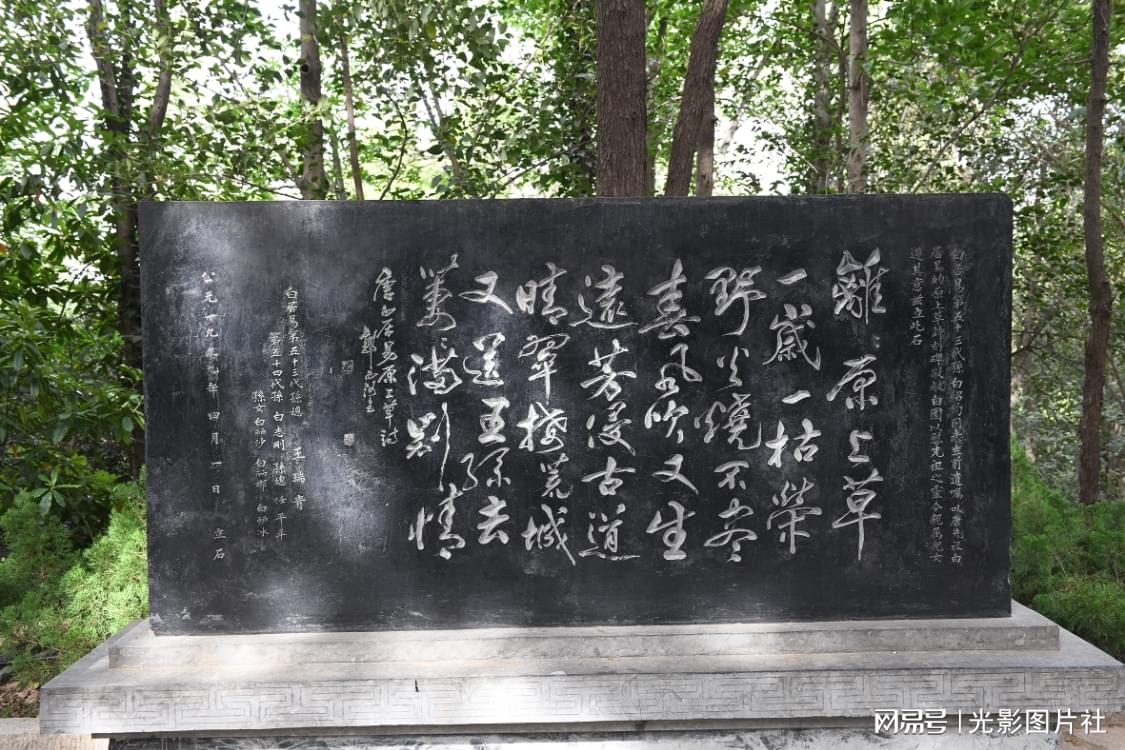 白居易第五十三代孙白绍 同志生前遗嘱以唐先祖白
居易的原上草诗刻碑敬献白园以慰先祖之灵今 儿女
道其意兹立此石
離離原上草
一歲一枯榮
野火燒不盡
春風吹又生
遠芳侵古道
晴翠接荒城
又送王孫去
萋萋滿别情
唐白居易原上草诗
白居易第五十三代孙媳 王瑞青
第五十四代孙 白志刚 孙媳 任平
孙女 白丽沙 白丽娜 白丽冰
公元一九 年 四月一日 立石
网易号 | 光影图片社